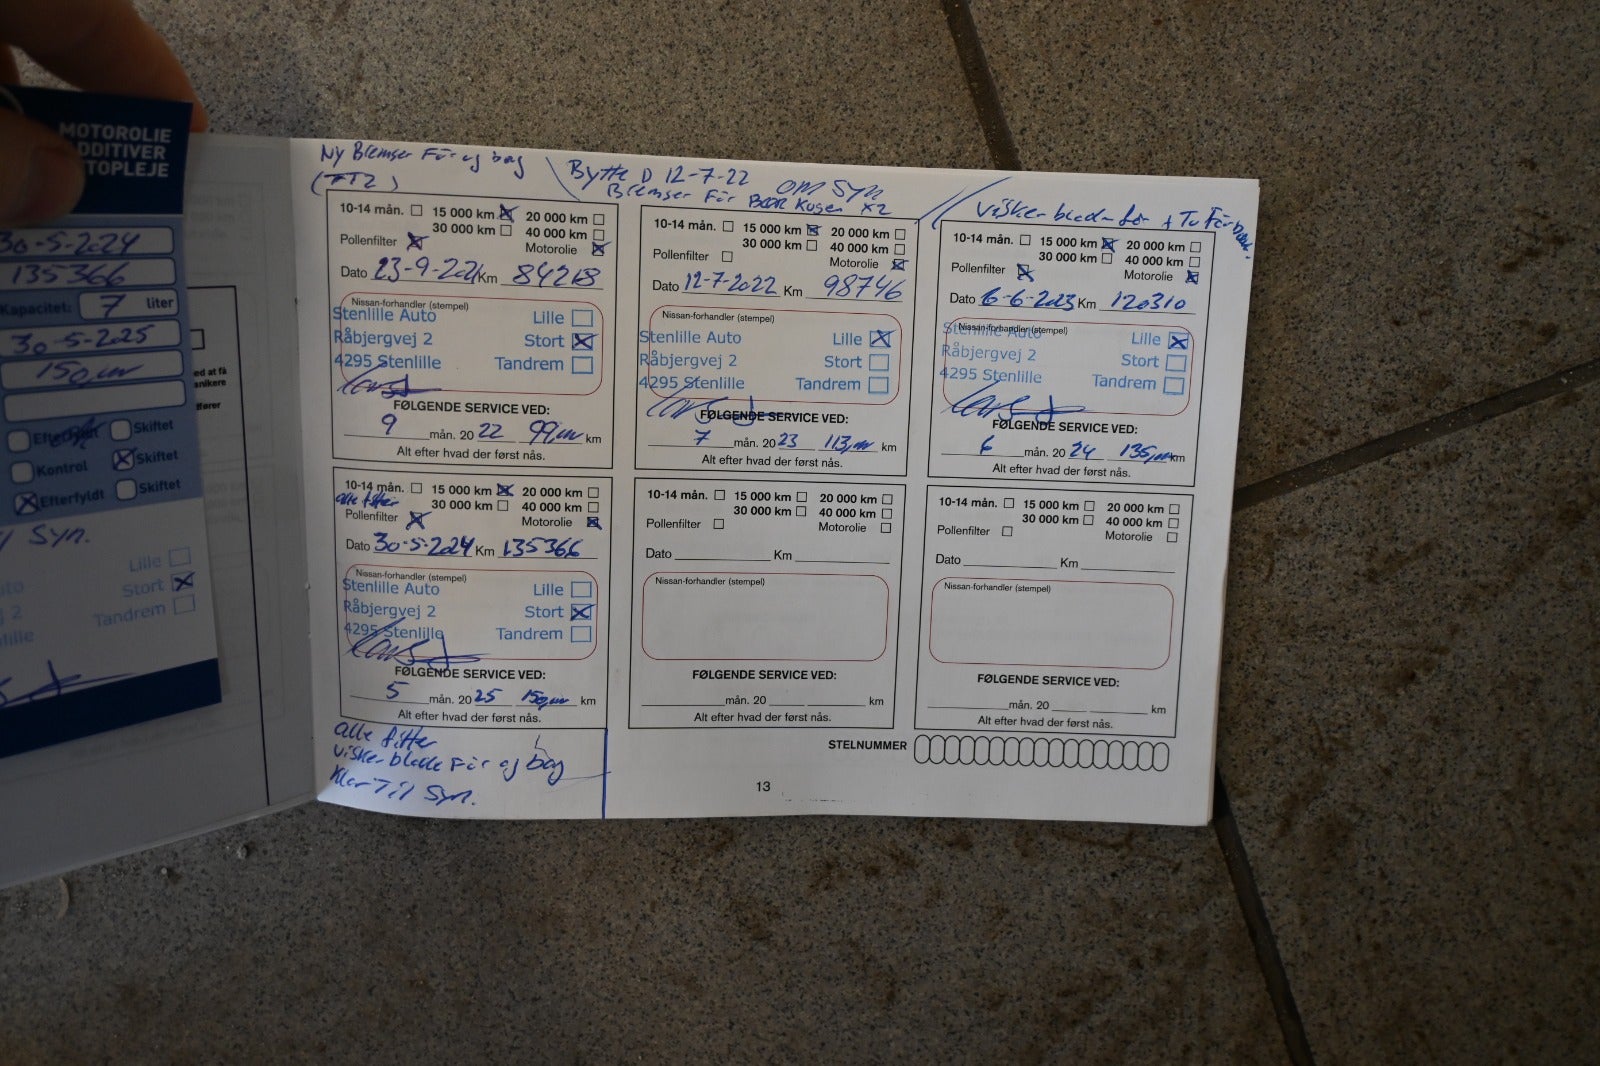 MOTOROLIE
ADDITIVER
TOPLEJE
30-5-2024
135366
Kapacitet: 7 liter
30-5-2025
150,
Efterfyldt Skiftet
Kontrol Skiftet
Efterfyldt Skiftet
Syn.
Lille
Stort
Tandrem
ed at få
Ny Bremser För og bag
Bytte D 12-7-22 om Syn
Bremser För BAR x2
Visker
10-14 mån. 15 000 km 20 000 km
30 000 km 40 000 km
Pollenfilter Motorolie
Dato 23-9-2021 Km 84218
Nissan-forhandler (stempel)
Stenlille Auto Lille
Råbjergvej 2 Stort
4295 Stenlille Tandrem
FØLGENDE SERVICE VED:
9 mån. 20 22 99, km
Alt efter hvad der først nås.
10-14 mån. 15 000 km 20 000 km
30 000 km 40 000 km
Pollenfilter Motorolie
Dato 12-7-2022 Km 98746
Nissan-forhandler (stempel)
Stenlille Auto Lille
Råbjergvej 2 Stort
4295 Stenlille Tandrem
FØLGENDE SERVICE VED:
7 mån. 20 23 113, km
Alt efter hvad der først nås.
10-14 mån. 15 000 km 20 000 km
30 000 km 40 000 km
Pollenfilter Motorolie
Dato 6-6-2023 Km 120310
Nissan-forhandler (stempel)
Stenlille Auto Lille
Råbjergvej 2 Stort
4295 Stenlille Tandrem
FØLGENDE SERVICE VED:
6 mån. 20 24 135, km
Alt efter hvad der først nås.
10-14 mån. 15 000 km 20 000 km
alle filter 30 000 km 40 000 km
Pollenfilter Motorolie
Dato 30-5-2024 Km 135366
Nissan-forhandler (stempel)
Stenlille Auto Lille
Råbjergvej 2 Stort
4295 Stenlille Tandrem
FØLGENDE SERVICE VED:
5 mån. 20 25 150, km
Alt efter hvad der først nås.
10-14 mån. 15 000 km 20 000 km
30 000 km 40 000 km
Pollenfilter Motorolie
Dato Km
Nissan-forhandler (stempel)
FØLGENDE SERVICE VED:
mån. 20 km
Alt efter hvad der først nås.
10-14 mån. 15 000 km 20 000 km
30 000 km 40 000 km
Pollenfilter Motorolie
Dato Km
Nissan-forhandler (stempel)
FØLGENDE SERVICE VED:
mån. 20 km
Alt efter hvad der først nås.
alle filter
Visker blade För og bag
Klar Til Syn.
STELNUMMER
13